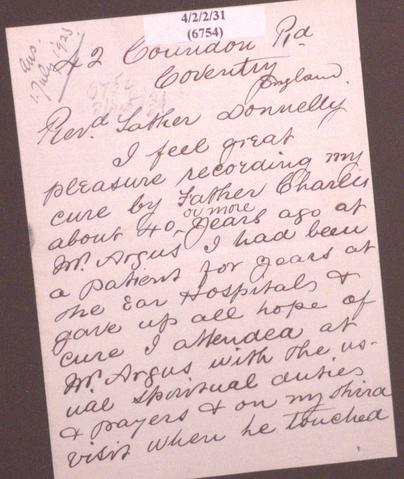 4/2/2/31
(6754)
Ans.
1. July 1923
42 Coundon Rd
Coventry
England.
Revd Father Donnelly
I feel great
pleasure recording my
cure by Father Charles
about 40 or more years ago at
Mt. Argus I had been
a patient for years at
the Ear Hospitals &
gave up all hope of
cure I attended at
Mt. Argus with the us-
ual spiritual duties
& prayers & on my third
visit when he touched